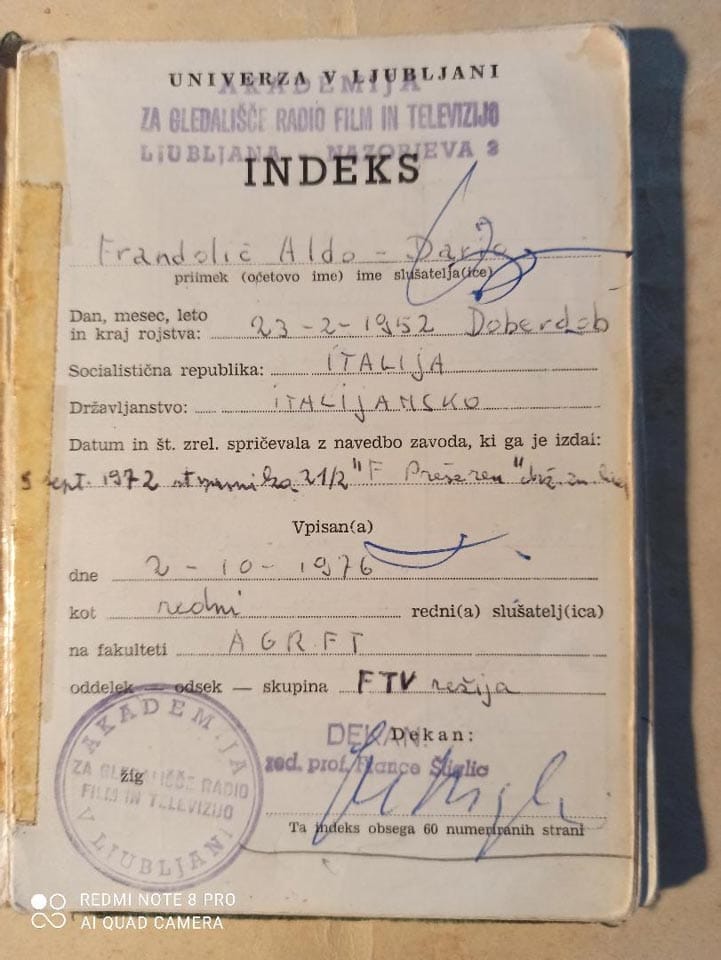 UNIVERZA V LJUBLJANI
AKADEMIJA
ZA GLEDALIŠČE RADIO FILM IN TELEVIZIJO
LJUBLJANA - NAZORJEVA 3
INDEKS
Frandolič Aldo - Darjo
priimek (očetovo ime) ime slušatelja(ice)
Dan, mesec, leto
in kraj rojstva: 23-2-1952 Doberdob
Socialistična republika: ITALIJA
Državljanstvo: ITALIJANSKO
Datum in št. zrel. spričevala z navedbo zavoda, ki ga je izdal:
sept. 1972 21/2 "F Prešeren"
Vpisan(a)
dne 2-10-1976
kot redni redni(a) slušatelj(ica)
na fakulteti AGRFT
oddelek — odsek — skupina FTV režija
DEKAN: Dekan:
red. prof. France Štiglic
žig
AKADEMIJA
ZA GLEDALIŠČE RADIO
FILM IN TELEVIZIJO
V LJUBLJANI
Ta indeks obsega 60 numeriranih strani
REDMI NOTE 8 PRO
AI QUAD CAMERA